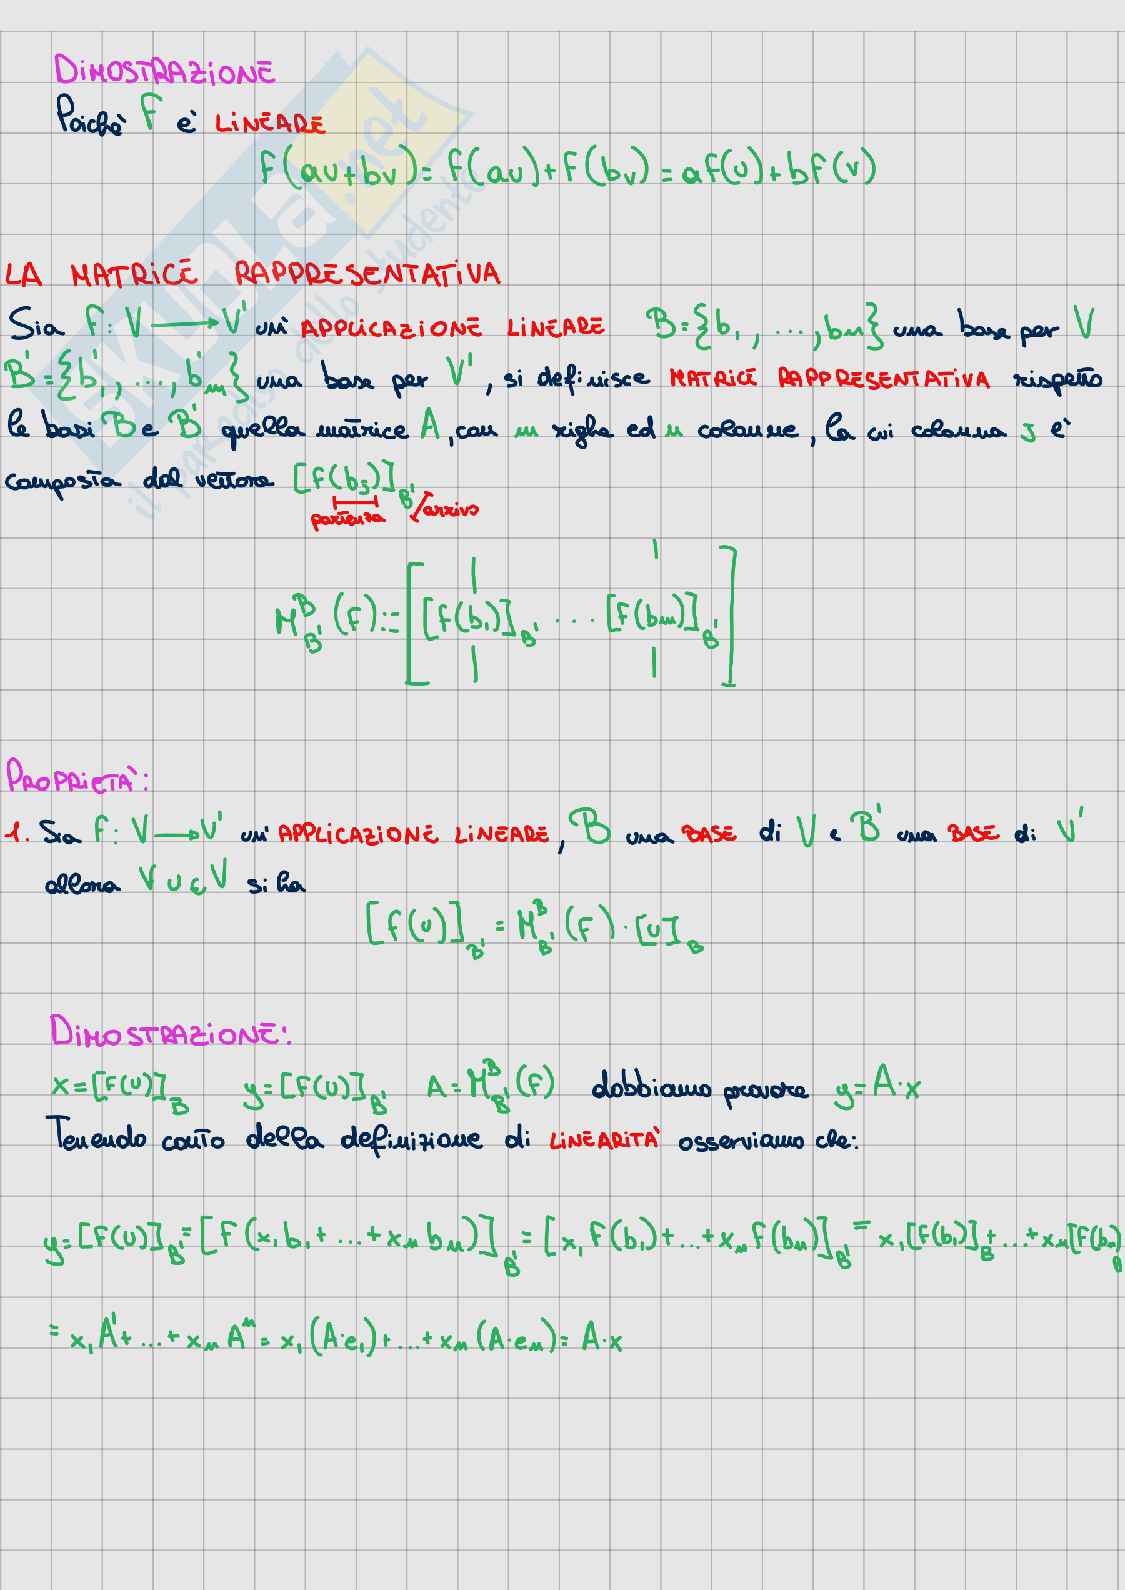 DIMOSTRAZIONE
Poiché f è LINEARE
f(au+bv) = f(au)+f(bv) = af(u)+bf(v)
LA MATRICE RAPPRESENTATIVA
Sia f: V → V' un' APPLICAZIONE LINEARE B={b₁, ..., bn} una base per V
B'={b'₁, ..., b'm} una base per V', si definisce MATRICE RAPPRESENTATIVA rispetto
le basi B e B' quella matrice A, con m righe ed n colonne, la cui colonna J è
composta dal vettore [f(bJ)]B'
partenza /arrivo
M^B_B'(f) := [[f(b₁)]B' ... [f(bn)]B']
PROPRIETÀ:
1. Sia f: V → V' un' APPLICAZIONE LINEARE, B una BASE di V e B' una BASE di V'
allora ∀ u ∈ V si ha
[f(u)]B' = M^B_B'(f) · [u]B
DIMOSTRAZIONE:
x = [f(u)]B y = [f(u)]B' A = M^B_B'(f) dobbiamo provare y = A·x
Tenendo conto della definizione di LINEARITÀ osserviamo che:
y = [f(u)]B' = [f(x₁b₁ + ... + xnbn)]B' = [x₁f(b₁) + ... + xnf(bn)]B' = x₁[f(b₁)]B + ... + xn[f(bn)]B
= x₁A¹ + ... + xnAⁿ = x₁(A·e₁) + ... + xn(A·en) = A·x
SKUOLA.net
il paradiso dello studente